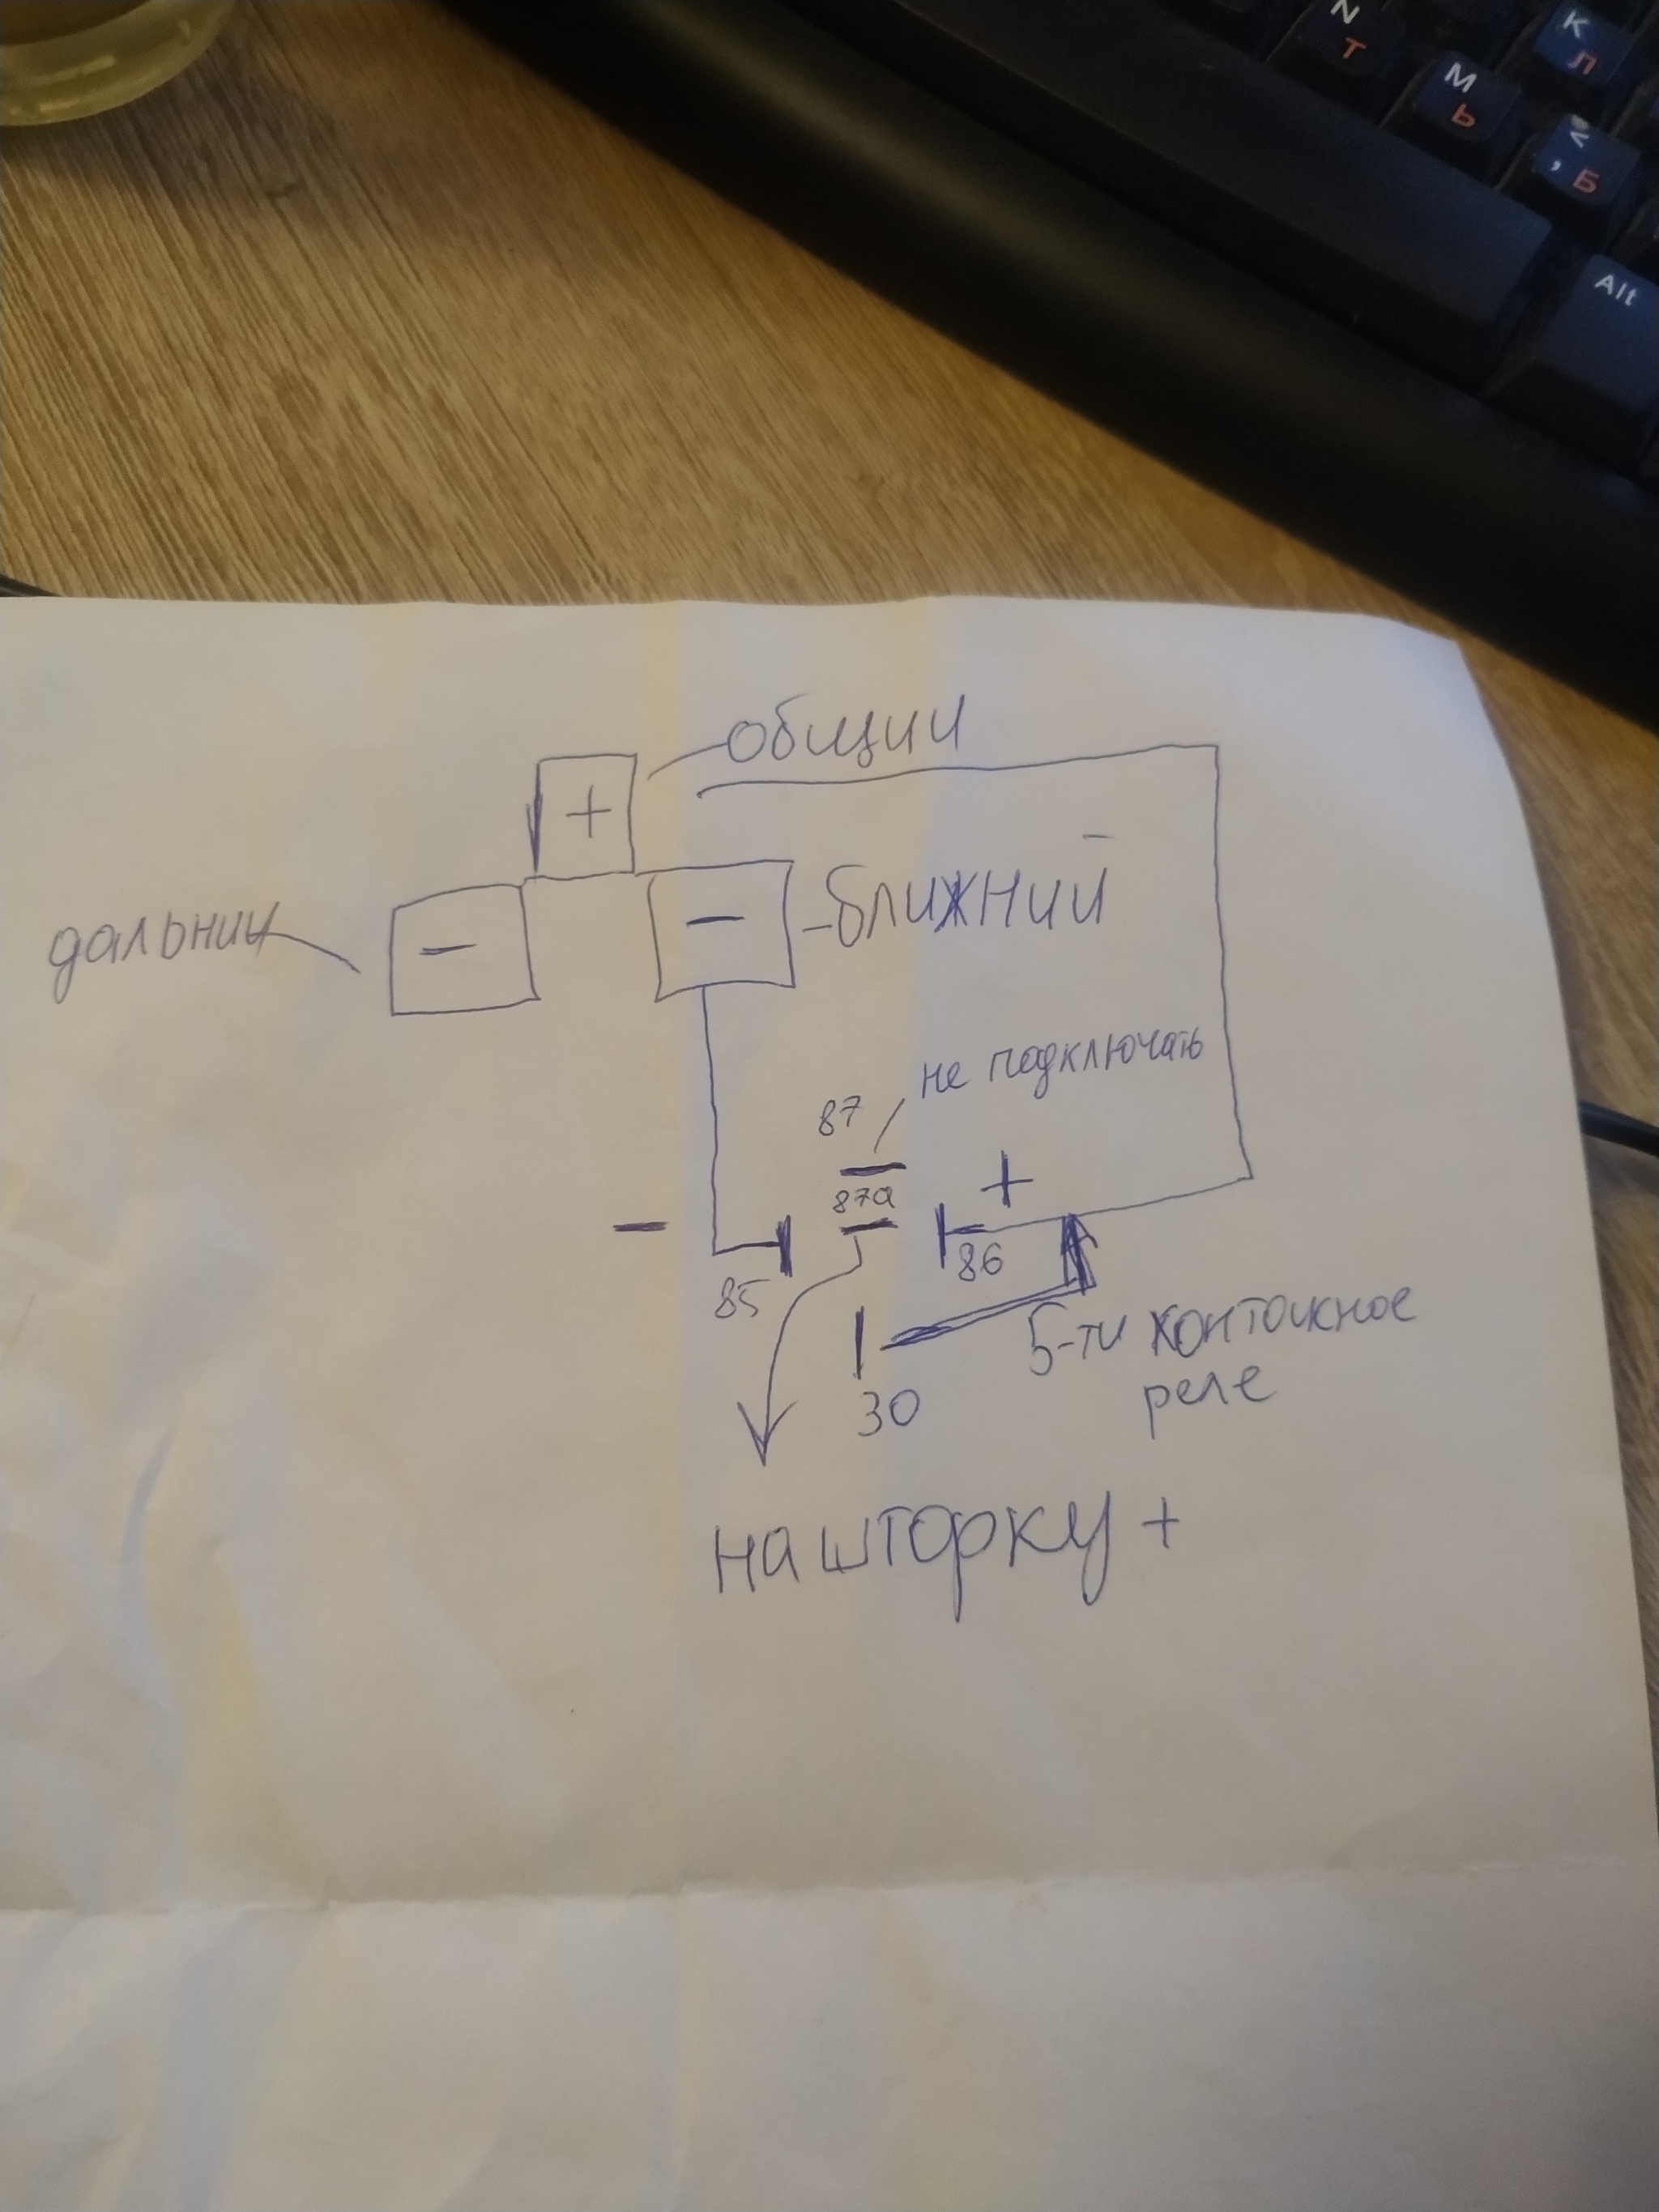 N
Т
К
Л
М
Ь
<
,
Б
Alt
общий
+
дальний
-
-
ближний
не подключать
87
+
87а
-
85
86
30
5-ти контактное
реле
на шторку +